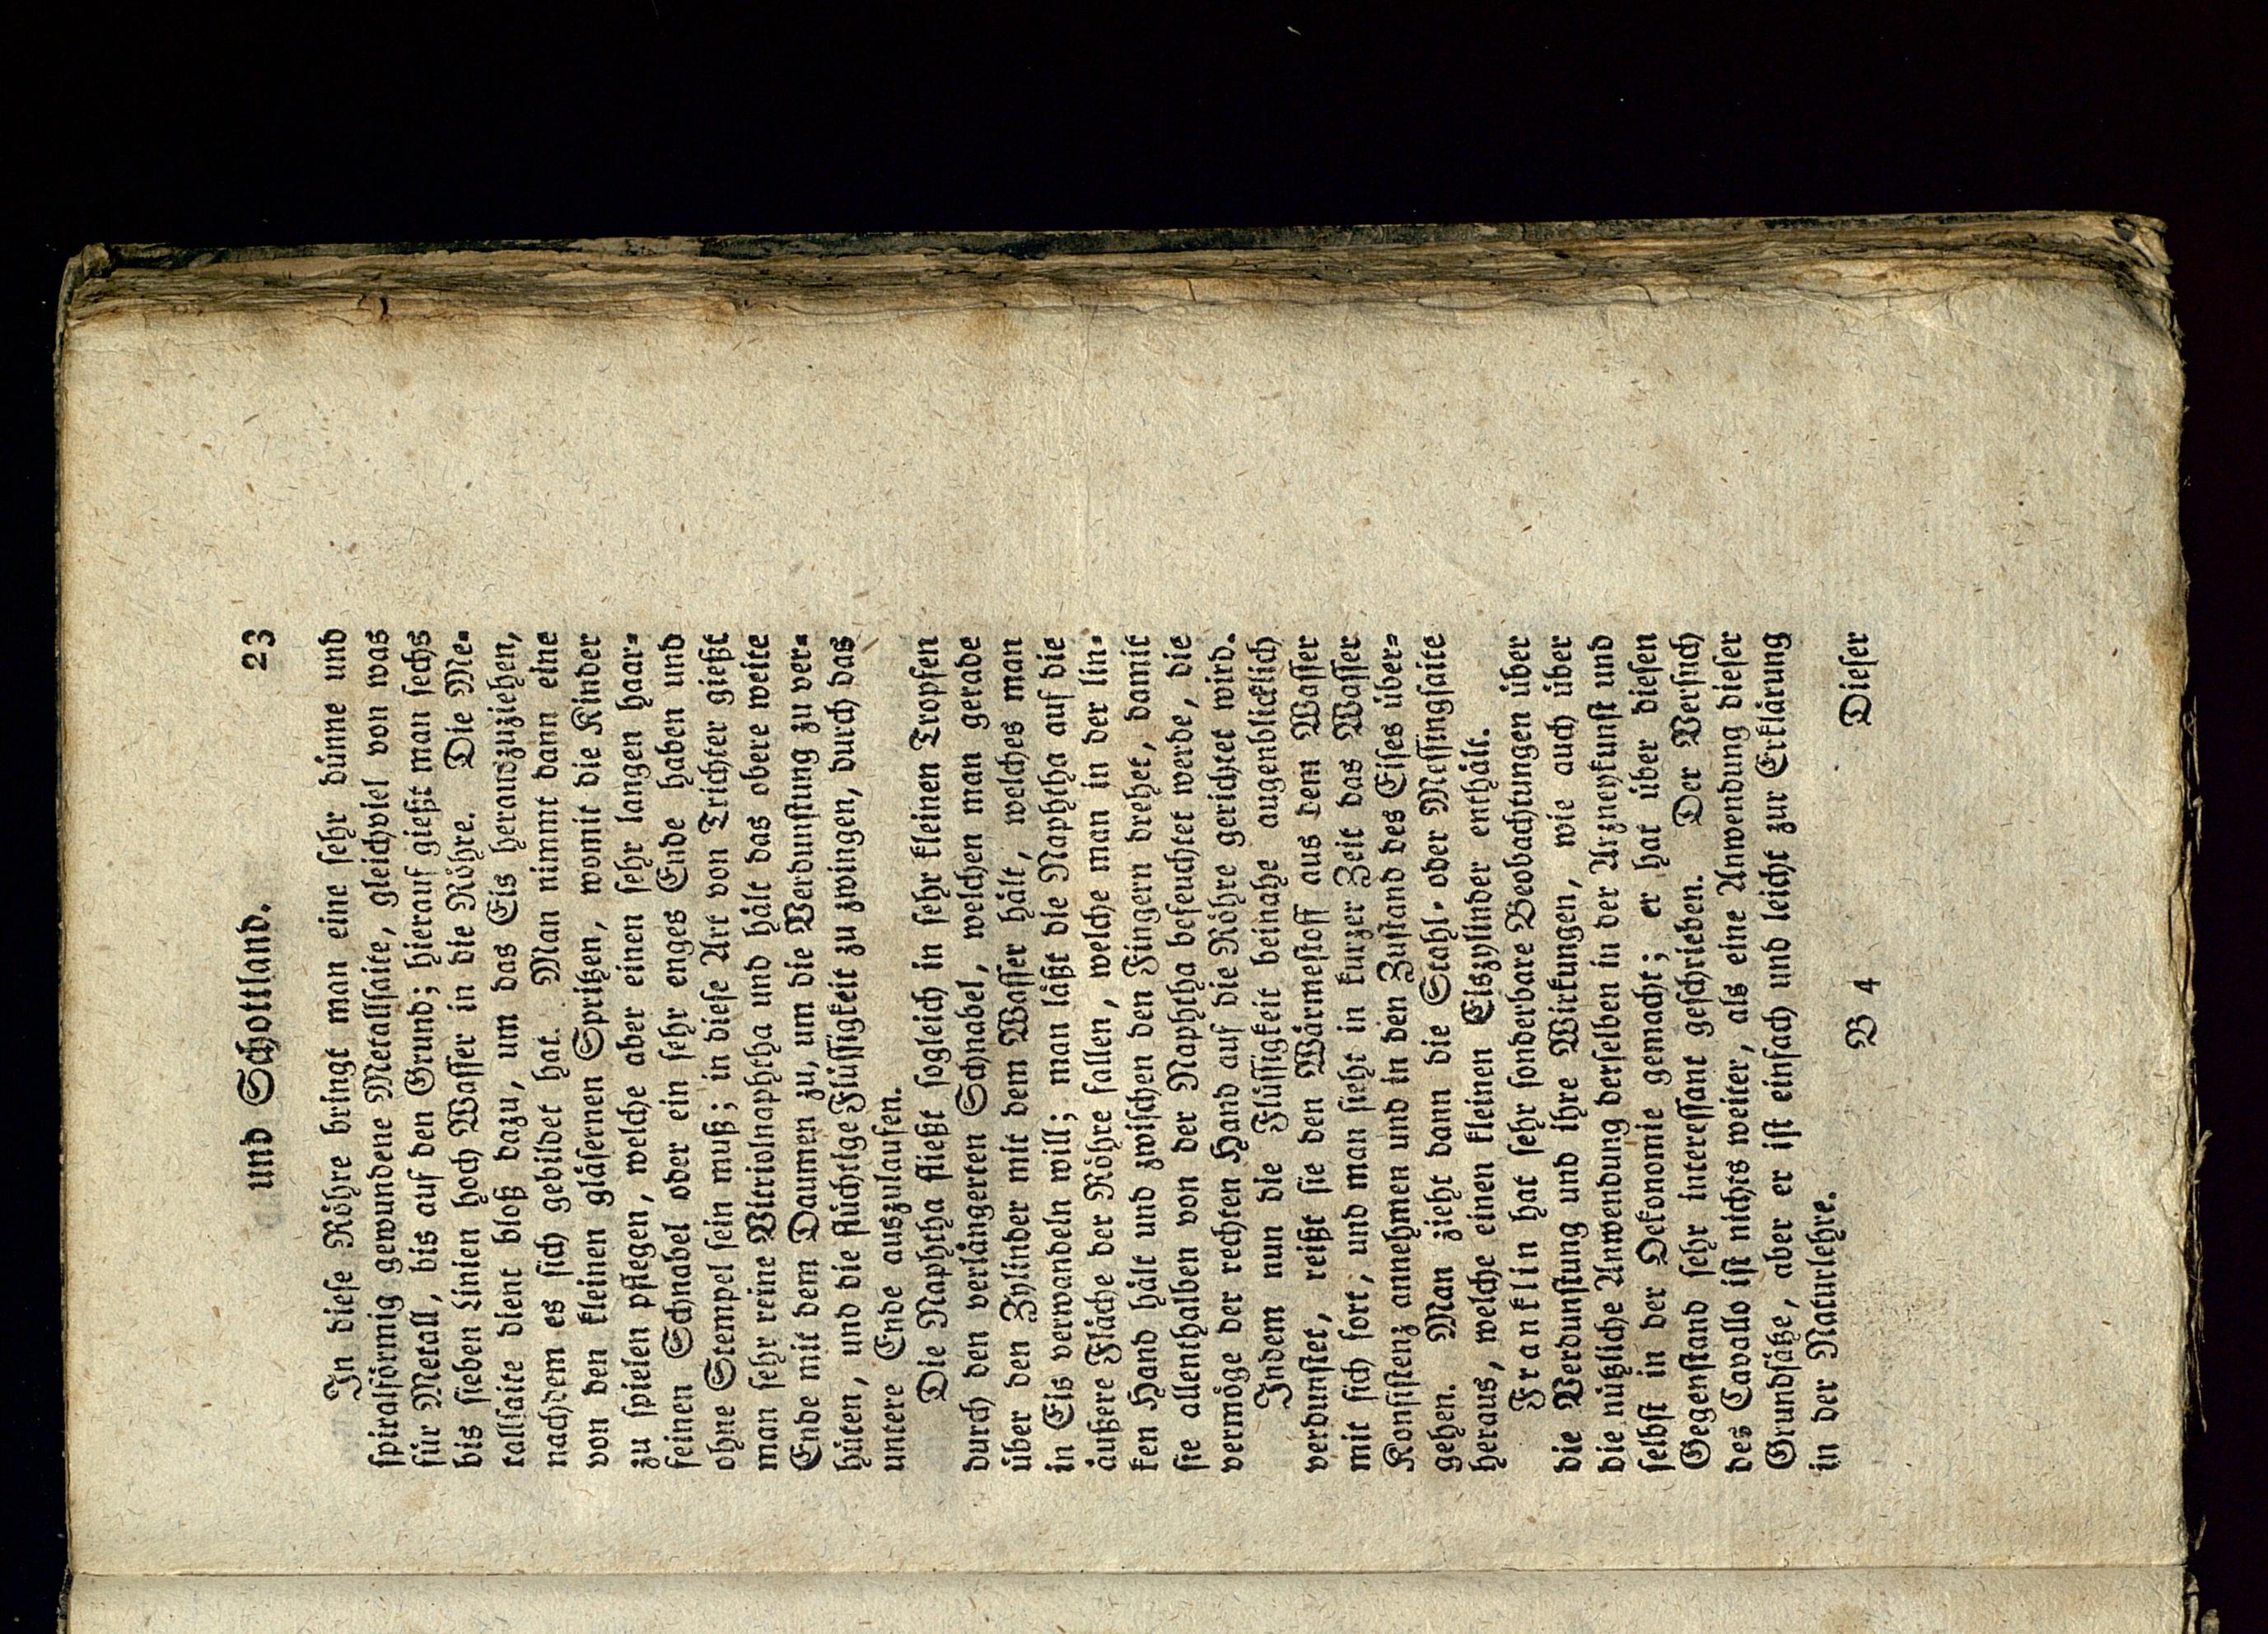 und Schottland. 23
In dieſe Röhre bringt man eine ſehr dünne und
ſpiralförmig gewundene Metallſaite, gleichviel von was
für Metall, bis auf den Grund; hierauf gießt man ſechs
bis ſieben Linien hoch Waſſer in die Röhre. Die Me-
tallſaite dient bloß dazu, um das Eis herauszuziehen,
nachdem es ſich gebildet hat. Man nimmt dann eine
von den kleinen gläſernen Spritzen, womit die Kinder
zu ſpielen pflegen, welche aber einen ſehr langen haar-
feinen Schnabel oder ein ſehr enges Ende haben und
ohne Stempel ſein muß; in dieſe Art von Trichter gießt
man ſehr reine Vitriolnaphtha und hält das obere weite
Ende mit dem Daumen zu, um die Verdunſtung zu ver-
hüten, und die flüchtige Flüſſigkeit zu zwingen, durch das
untere Ende auszulaufen.
Die Naphtha fließt ſogleich in ſehr kleinen Tropfen
durch den verlängerten Schnabel, welchen man gerade
über den Zylinder mit dem Waſſer hält, welches man
in Eis verwandeln will; man läßt die Naphtha auf die
äußere Fläche der Röhre fallen, welche man in der lin-
ken Hand hält und zwiſchen den Fingern drehet, damit
ſie allenthalben von der Naphtha befeuchtet werde, die
vermöge der rechten Hand auf die Röhre gerichtet wird.
Indem nun die Flüſſigkeit beinahe augenblicklich
verdunſtet, reißt ſie den Wärmeſtoff aus dem Waſſer
mit ſich fort, und man ſieht in kurzer Zeit das Waſſer
Konſiſtenz annehmen und in den Zuſtand des Eiſes über-
gehen. Man zieht dann die Stahl- oder Meſſingſaite
heraus, welche einen kleinen Eiszylinder enthält.
Franklin hat ſehr ſonderbare Beobachtungen über
die Verdunſtung und ihre Wirkungen, wie auch über
die nützliche Anwendung derſelben in der Arzneykunſt und
ſelbſt in der Oekonomie gemacht; er hat über dieſen
Gegenſtand ſehr intereſſant geſchrieben. Der Verſuch
des Cavallo iſt nichts weiter, als eine Anwendung dieſer
Grundſätze, aber er iſt einfach und leicht zur Erklärung
in der Naturlehre.
B 4 Dieſer